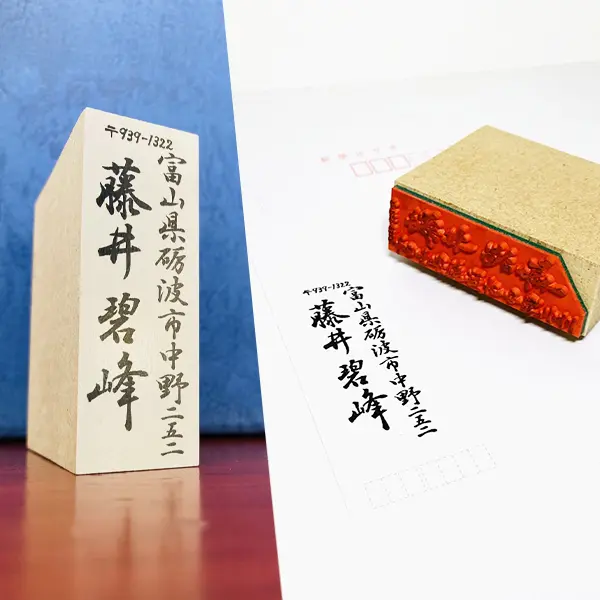 〒939-1322
富山県砺波市中野二五二
藤井碧峰
〒939-1322
富山県砺波市中野二五二
藤井碧峰